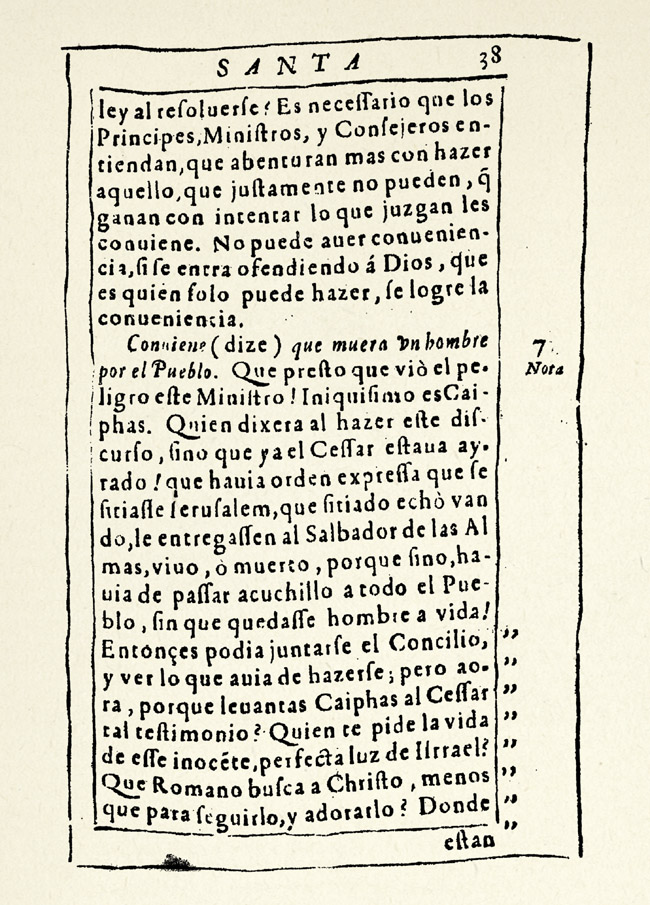 SANTA 38
ley al resoluerse? Es necessario que los
Principes,Ministros, y Consejeros en-
tiendan,que abenturan mas con hazer
aquello,que justamente no pueden, q̃
ganan con intentar lo que juzgan les
conuiene. No puede auer conuenien-
cia,si se entra ofendiendo á Dios, que
es quien solo puede hazer, se logre la
conueniencia.
Conuiene (dize) que muera vn hombre
por el Pueblo. Que presto que viò el pe-
ligro este Ministro! Iniquisimo es Cai-
phas. Quien dixera al hazer este dis-
curso, sino que ya el Cessar estaua ay-
rado! que hauia orden expressa que se
sitiasse Ierusalem,que sitiado echò van
do,le entregassen al Salbador de las Al
mas,viuo, ò muerto, porque sino,ha-
uia de passar acuchillo a todo el Pue-
blo, sin que quedasse hombre a vida!
Entonçes podia juntarse el Concilio,
y ver lo que auia de hazerse; pero ao-
ra, porque leuantas Caiphas al Cessar
tal testimonio? Quien te pide la vida
de esse inocẽte,perfecta luz de Iirrael?
Que Romano busca a Christo, menos
que para seguirlo,y adorarlo? Donde
estan
7.
Nota
„
„
„
„
„
„
„
„